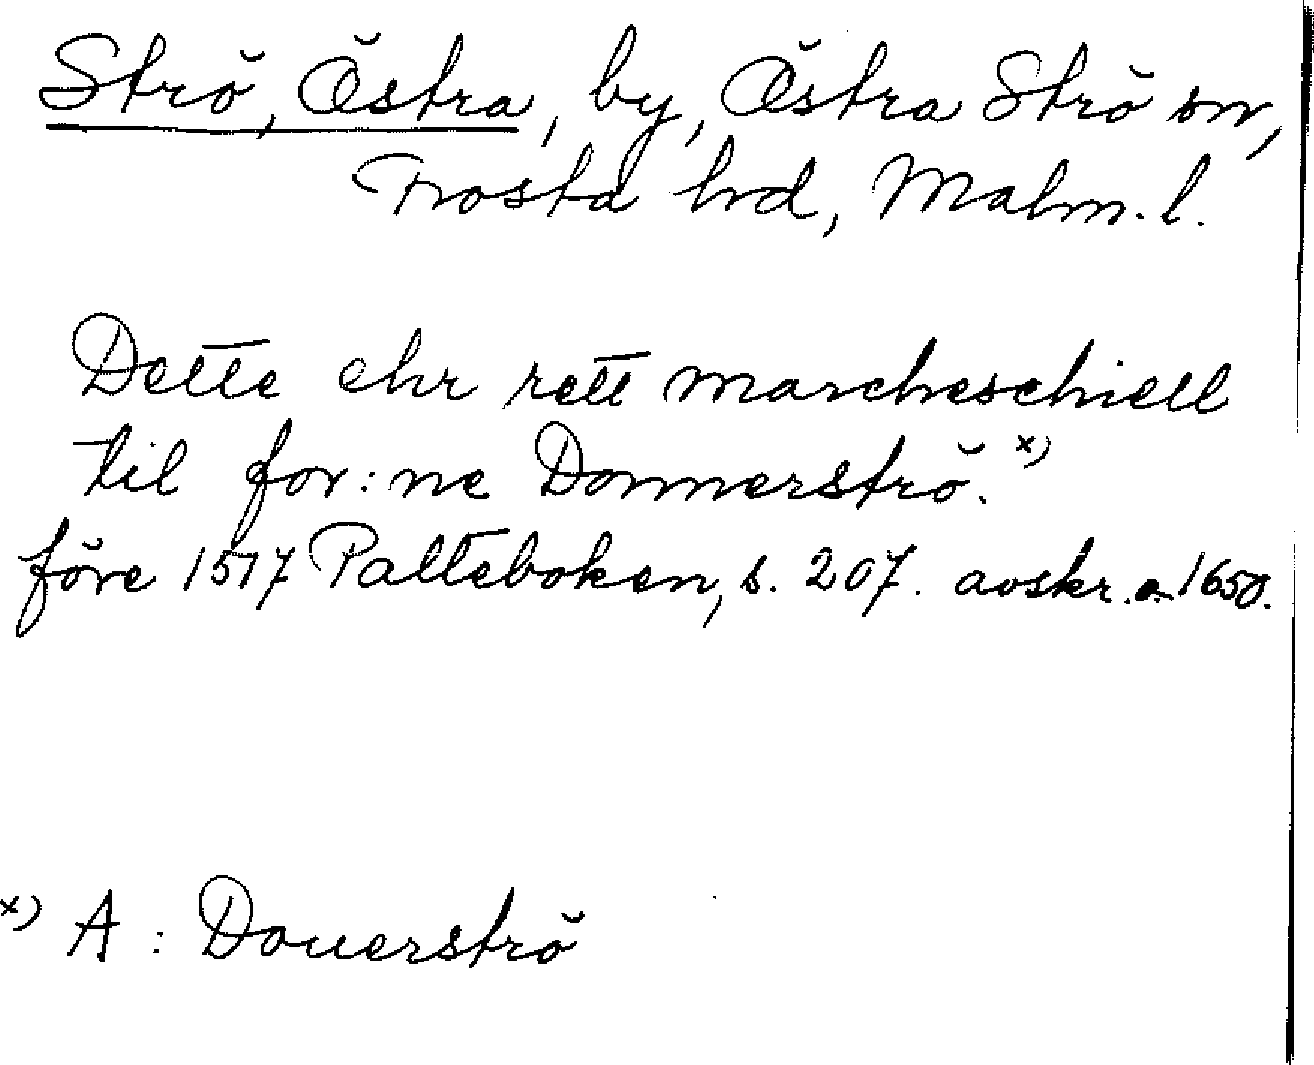 Strö, Östra, by, Östra Strö sn,
Frosta hd, Malm. l.
Dette ehr rett marcheschiell
til for:ne Donnerströ. x)
före 1517 Palteboken, s. 207. avskr. o. 1650.
x) A : Douerströ